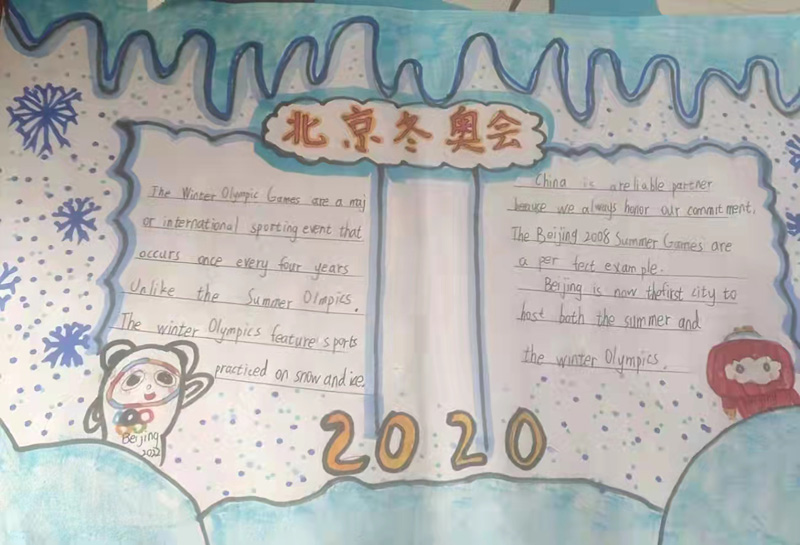 北京冬奥会
The Winter Olympic Games are a maj
or international sporting event that
occurs once every four years
Unlike the Summer Olmpics.
The winter Olympics feature sports
practiced on snow and ice.
China is areliable partner
becuse we always honor our commitment.
The Beijing 2008 Summer Games are
a per fect exam ple.
Beijing is now thefirst city to
host both the summer and
the winter Olympics.
Beijing
2022
2020